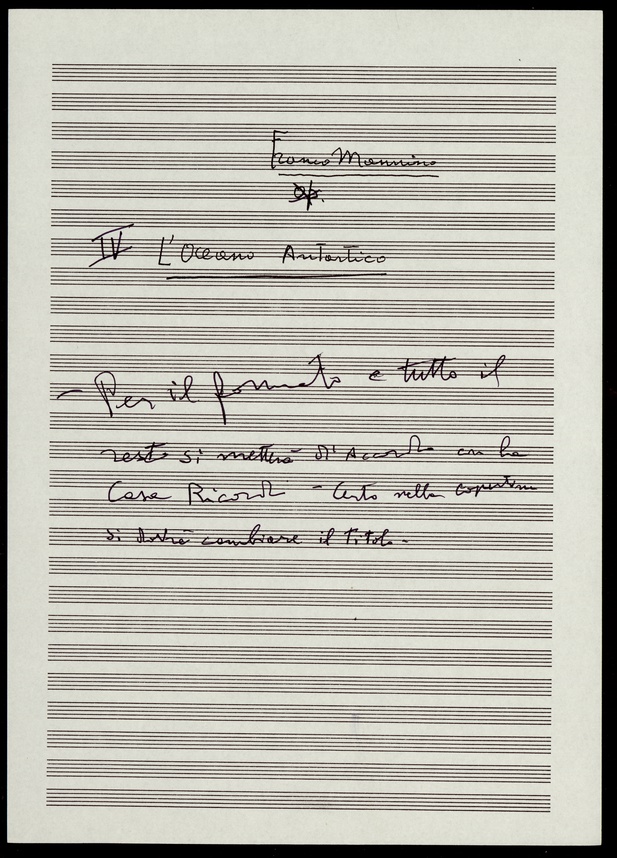 Franco Mannino
op.
IV L'Oceano Antartico
- Per il formato e tutto il
resto si metterà d'accordo con la
Casa Ricordi - Certo nella copertina
si dovrà cambiare il titolo -